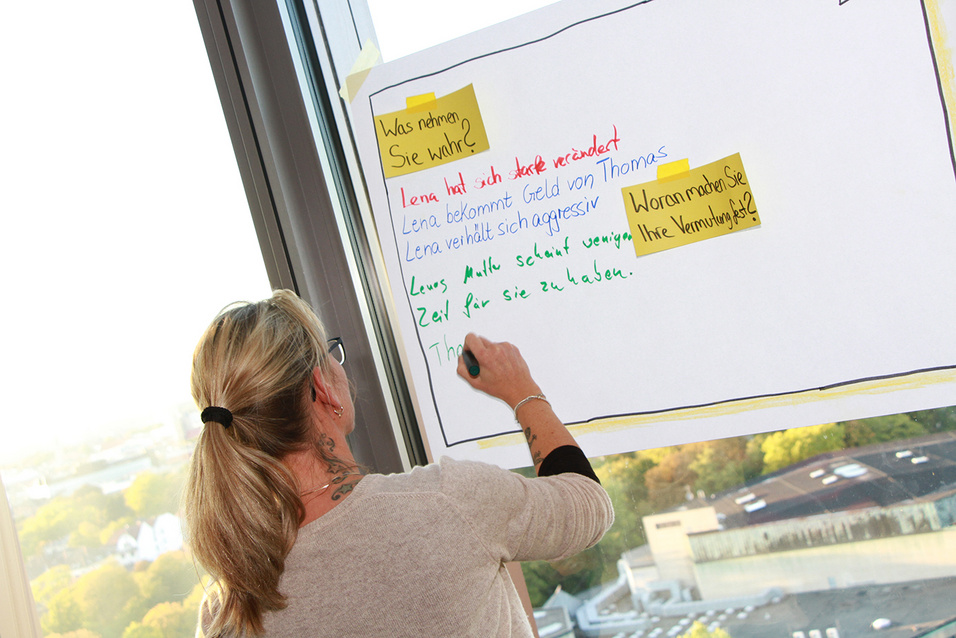 Was nehmen
Sie wahr?
Lena hat sich stark verändert
Lena bekommt Geld von Thomas
Lena verhält sich aggressiv
Woran machen Sie
Ihre Vermutung fest?
Lenas Mutter scheint weniger
Zeit für sie zu haben.
Tho